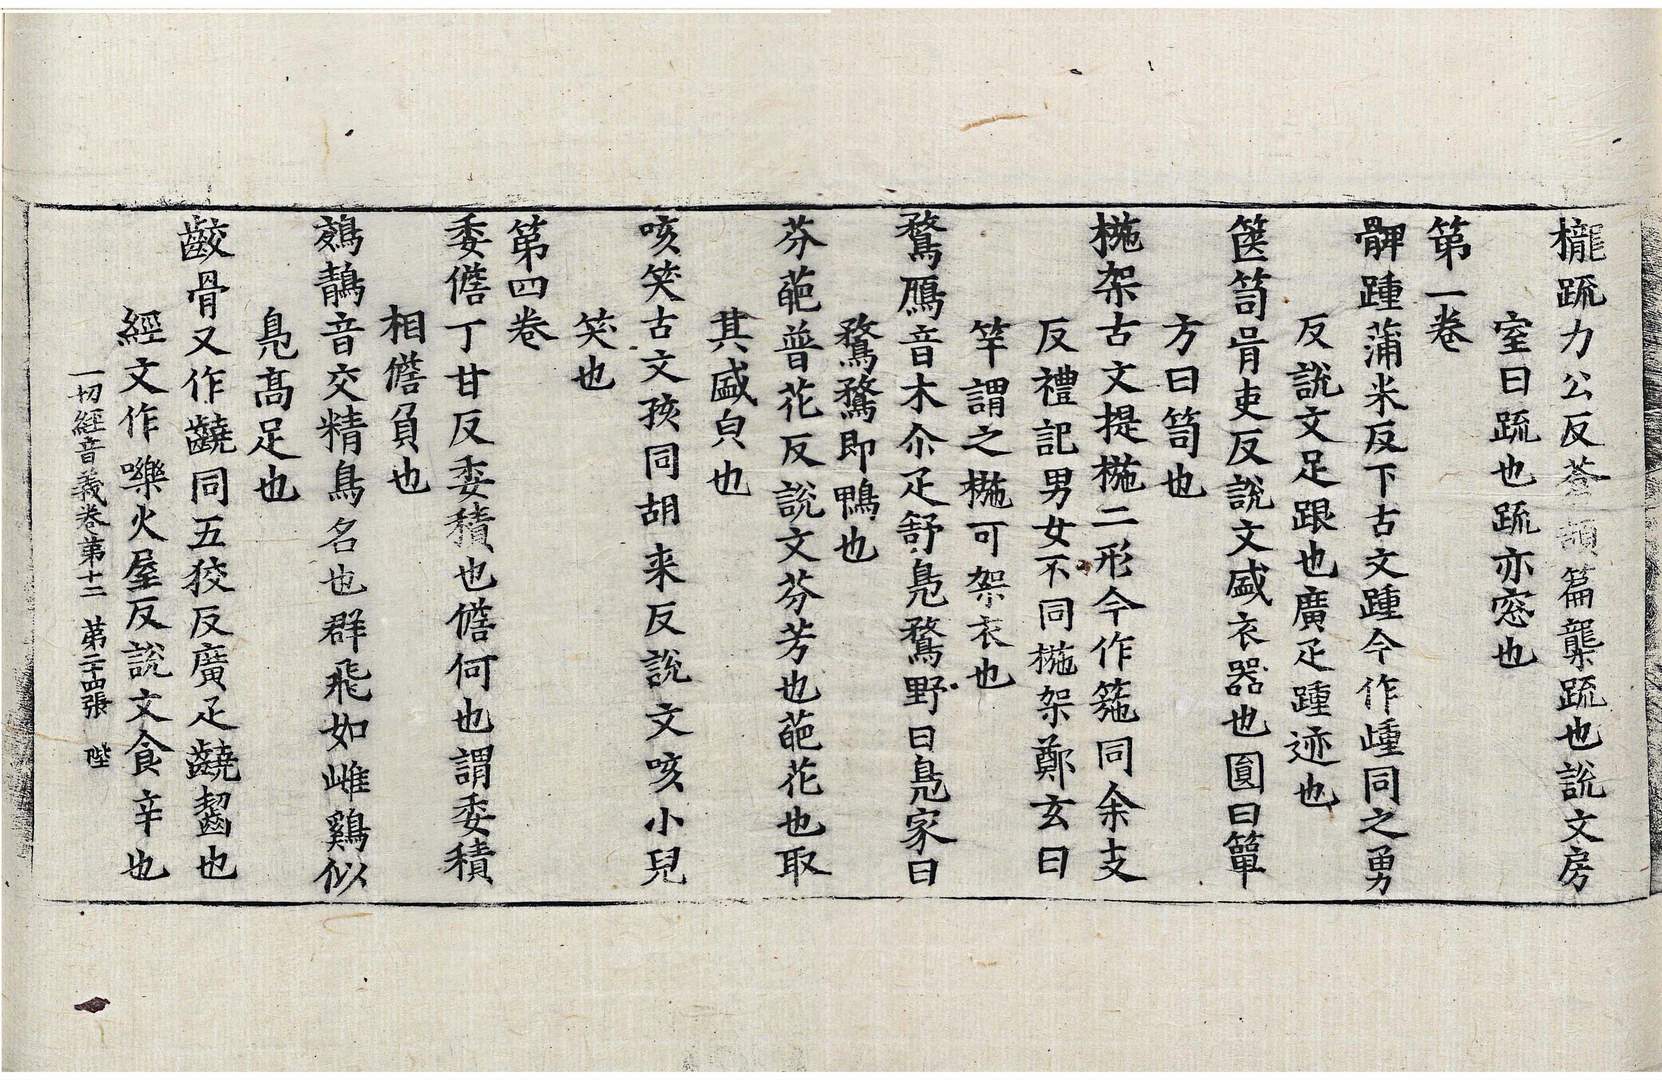 櫳疏力公反蒼頡篇櫳疏也說文房
室曰疏也疏亦窓也
第一卷
髀踵蒲米反下古文踵今作歱同之勇
反說文足跟也廣疋踵迹也
篋笥胥吏反說文盛衣器也圓曰簞
方曰笥也
椸架古文提椸二形今作箷同余支
反禮記男女不同椸架鄭玄曰
竿謂之椸可架衣也
鶩鴈音木尒疋舒鳧鶩野曰鳧家曰
鶩鶩即鴨也
芬葩普花反說文芬芳也葩花也取
其盛皃也
咳笑古文孩同胡来反說文咳小兒
笑也
第四卷
委儋丁甘反委積也儋何也謂委積
相儋負也
鵁鶄音交精鳥名也群飛如雌鷄似
鳧髙足也
齩骨又作齩同五狡反廣疋齩齧也
經文作嚛火屋反說文食辛也
一切經音義卷第十二 第二十四張 陛